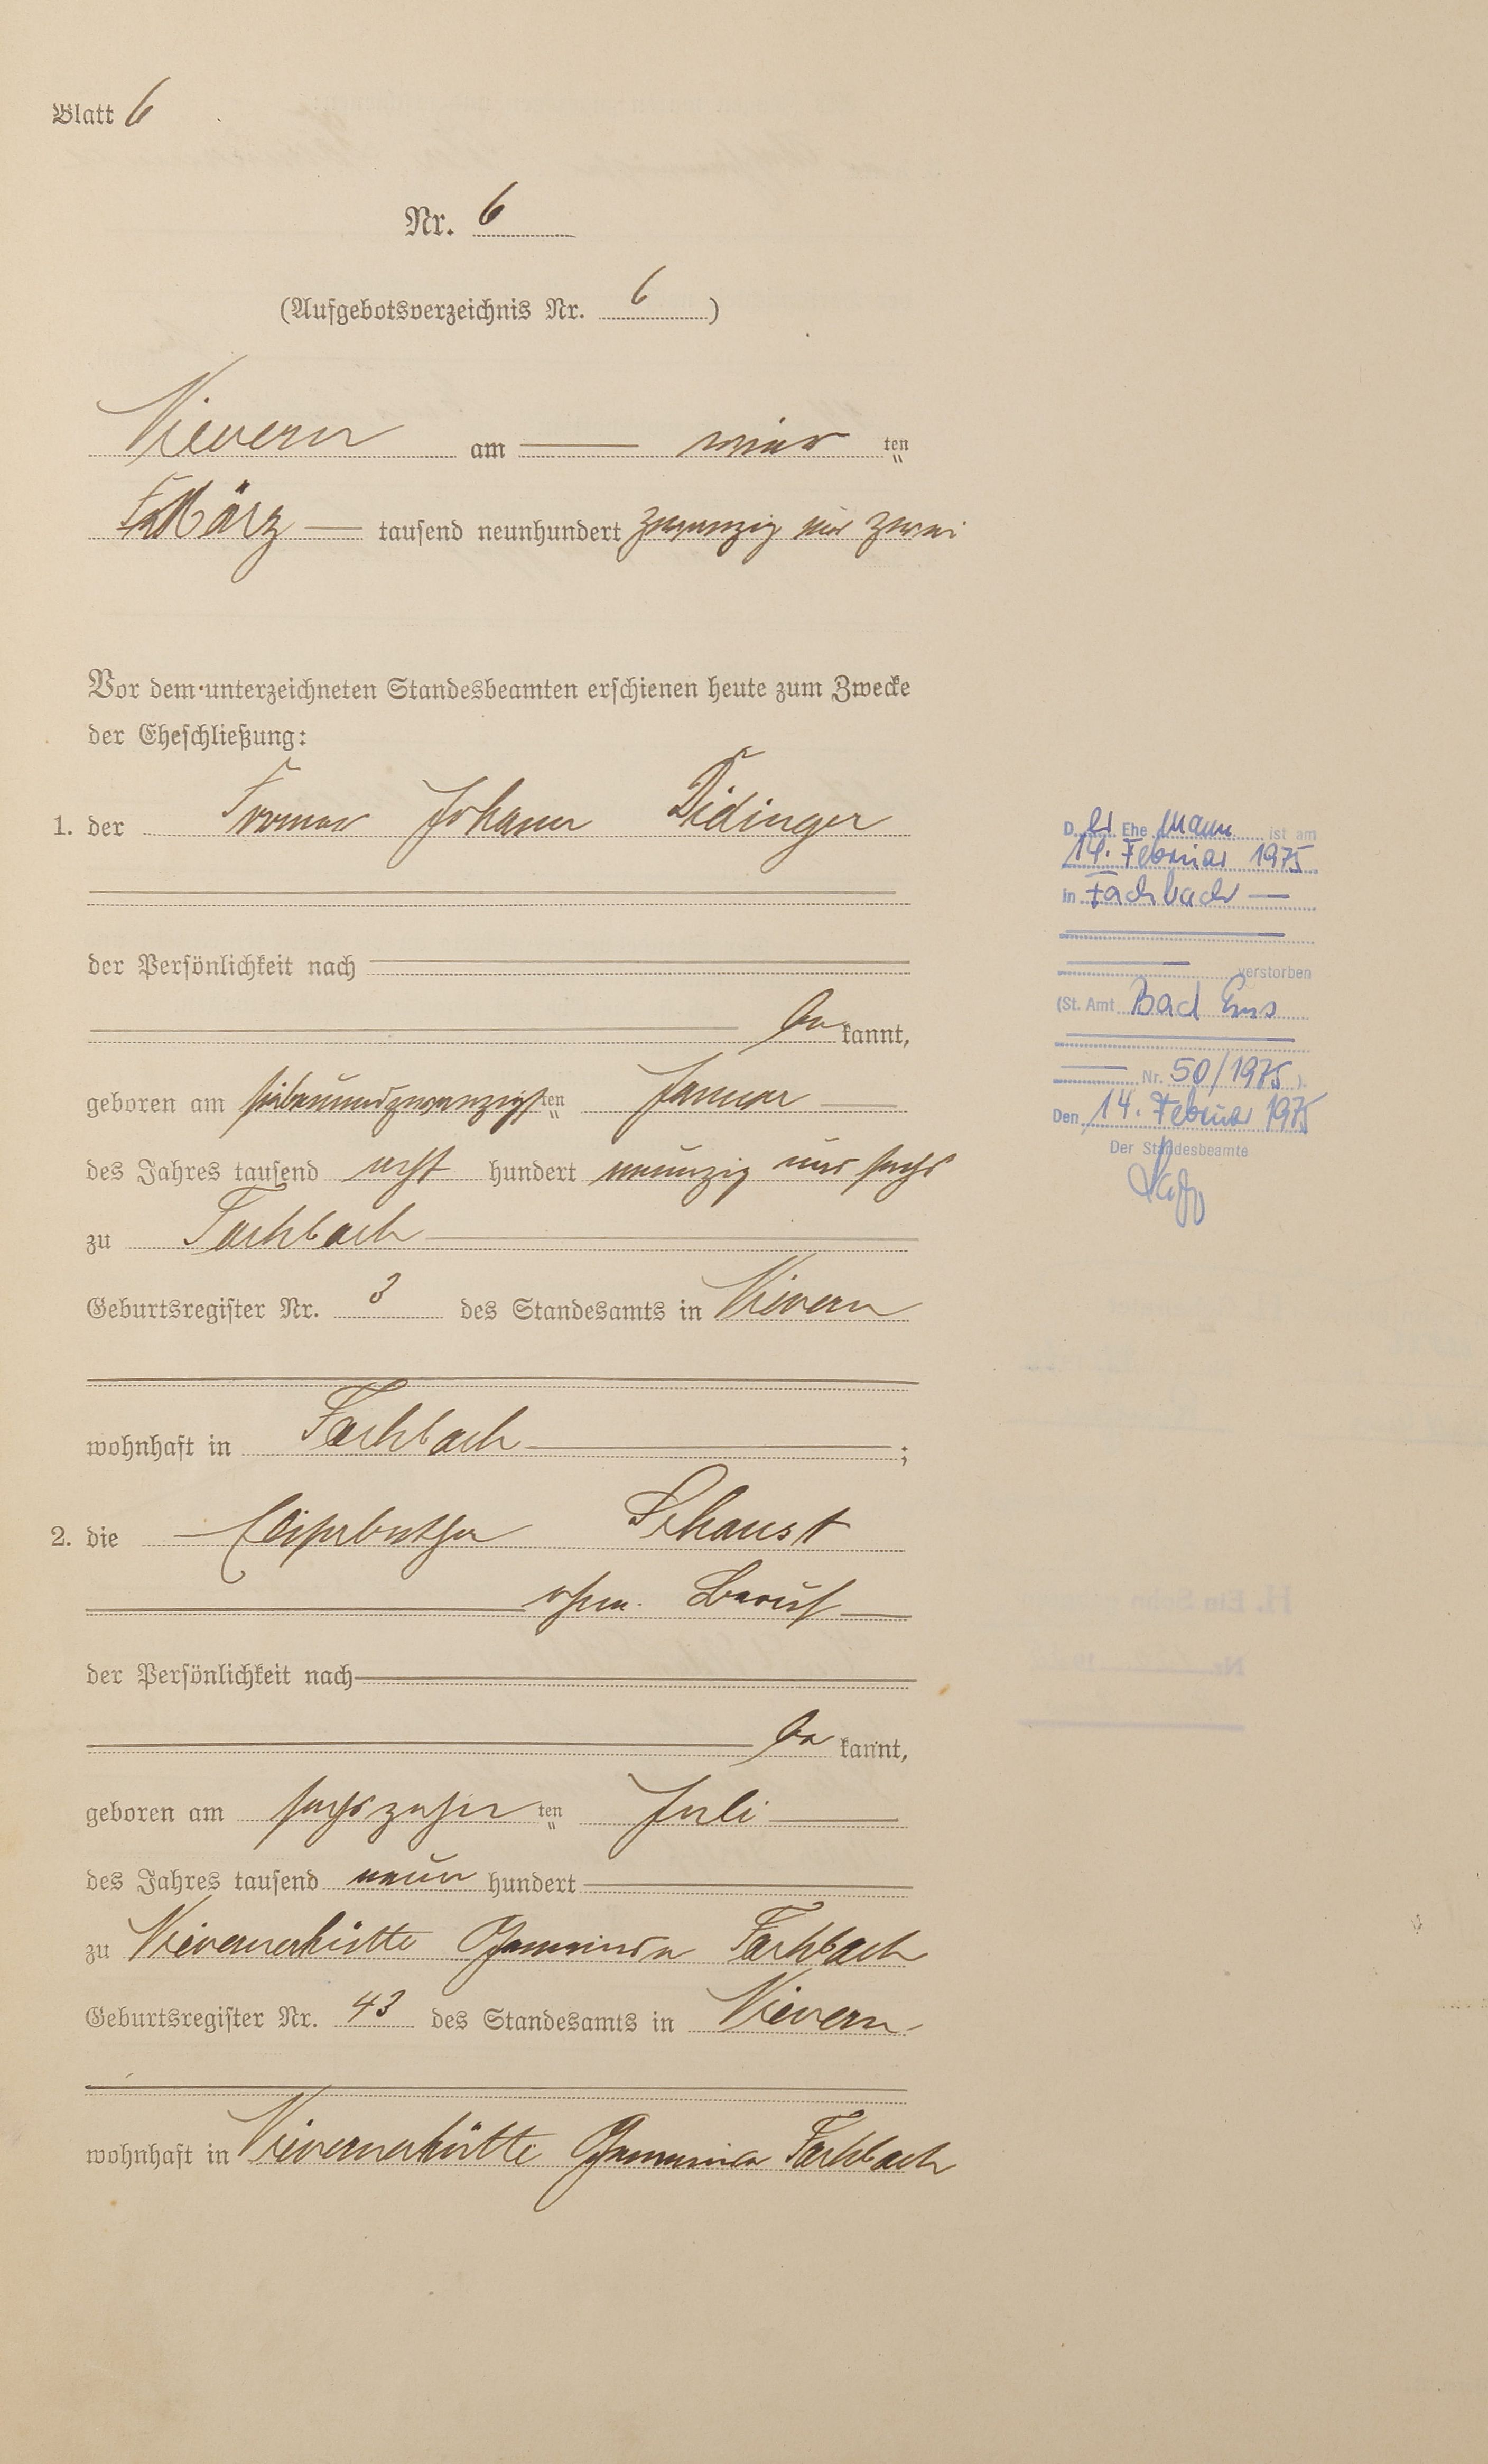 Blatt 6
Nr. 6
(Aufgebotsverzeichnis Nr. 6)
Nievern am vier ten
März tausend neunhundert zwanzig und zwei
Vor dem unterzeichneten Standesbeamten erschienen heute zum Zwecke
der Eheschließung:
1. der Former Johann Didinger
der Persönlichkeit nach
be kannt,
geboren am siebenundzwanzigsten Januar
des Jahres tausend acht hundert neunzig und sechs
zu Fachbach
Geburtsregister Nr. 3 des Standesamts in Nievern
wohnhaft in Fachbach ;
2. die Elisabetha Schaust
ohne Beruf
der Persönlichkeit nach
be kannt,
geboren am sechszehn ten Juli
des Jahres tausend neun hundert
zu Nievernerhütte Gemeinde Fachbach
Geburtsregister Nr. 43 des Standesamts in Nievern
wohnhaft in Nievernerhütte Gemeinde Fachbach
D. er Ehe mann ist am
14. Februar 1975
in Fachbach
verstorben
(St. Amt Bad Ems
Nr. 50/1975 ).
Den 14. Februar 1975
Der Standesbeamte